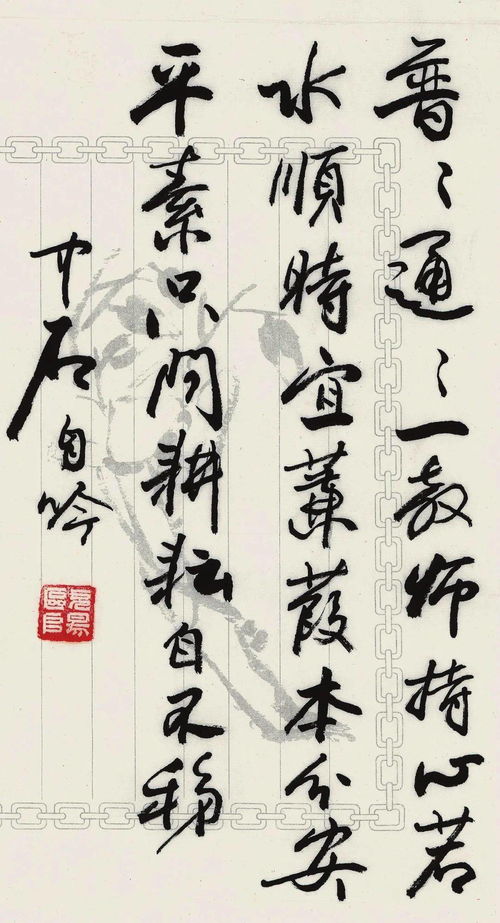 普々通々一教師持心若
水順時宜蒹葭本分安
平素只問耕耘自不移
中石自吟